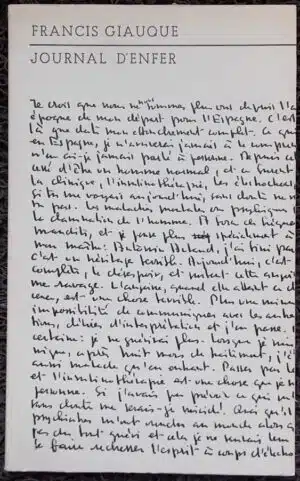 FRANCIS GIAUQUE
JOURNAL D'ENFER
Je crois que nous ne nous sommes plus vus depuis l'
époque de mon départ pour l'Espagne. C'est
là que date mon effondrement complet. Ce qu
en Espagne, je n'arriverai jamais à le
n'en ai-je jamais parlé à personne. Depuis ce
cessé d'être un homme normal, et ce furent
la clinique, l'insulinothérapie, les électrochocs
si tu me voyais aujourd'hui, sans doute ne
pas. Les maladies mentales ou psychiques
la damnation de l'homme. A force de
maudits, et je pense plus précisément à
mon maître: Antonin Artaud, j'ai fini par
c'est un héritage terrible. Aujourd'hui, c'est
complète, le désespoir, et surtout cette
me ravage. L'angoisse, quand elle atteint ce d
est une chose terrible. Plus une minu
impossibilité de communiquer avec les autre
tions, d'idées d'interprétation et j'en passe.
certain: je ne guérirai plus. Lorsque je
nique, après huit mois de traitement, j'é
aussi malade qu'en entrant. Passer par l
et l'insulinothérapie est une chose que je
personne. Si j'avais pu prévoir ce qui
sans doute me serais-je suicidé. Ainsi qu'il
psychiatres m'ont rendu au monde alors q
pas du tout guéri et cela je ne voulais
le faire redresser l'esprit à coups d'électro